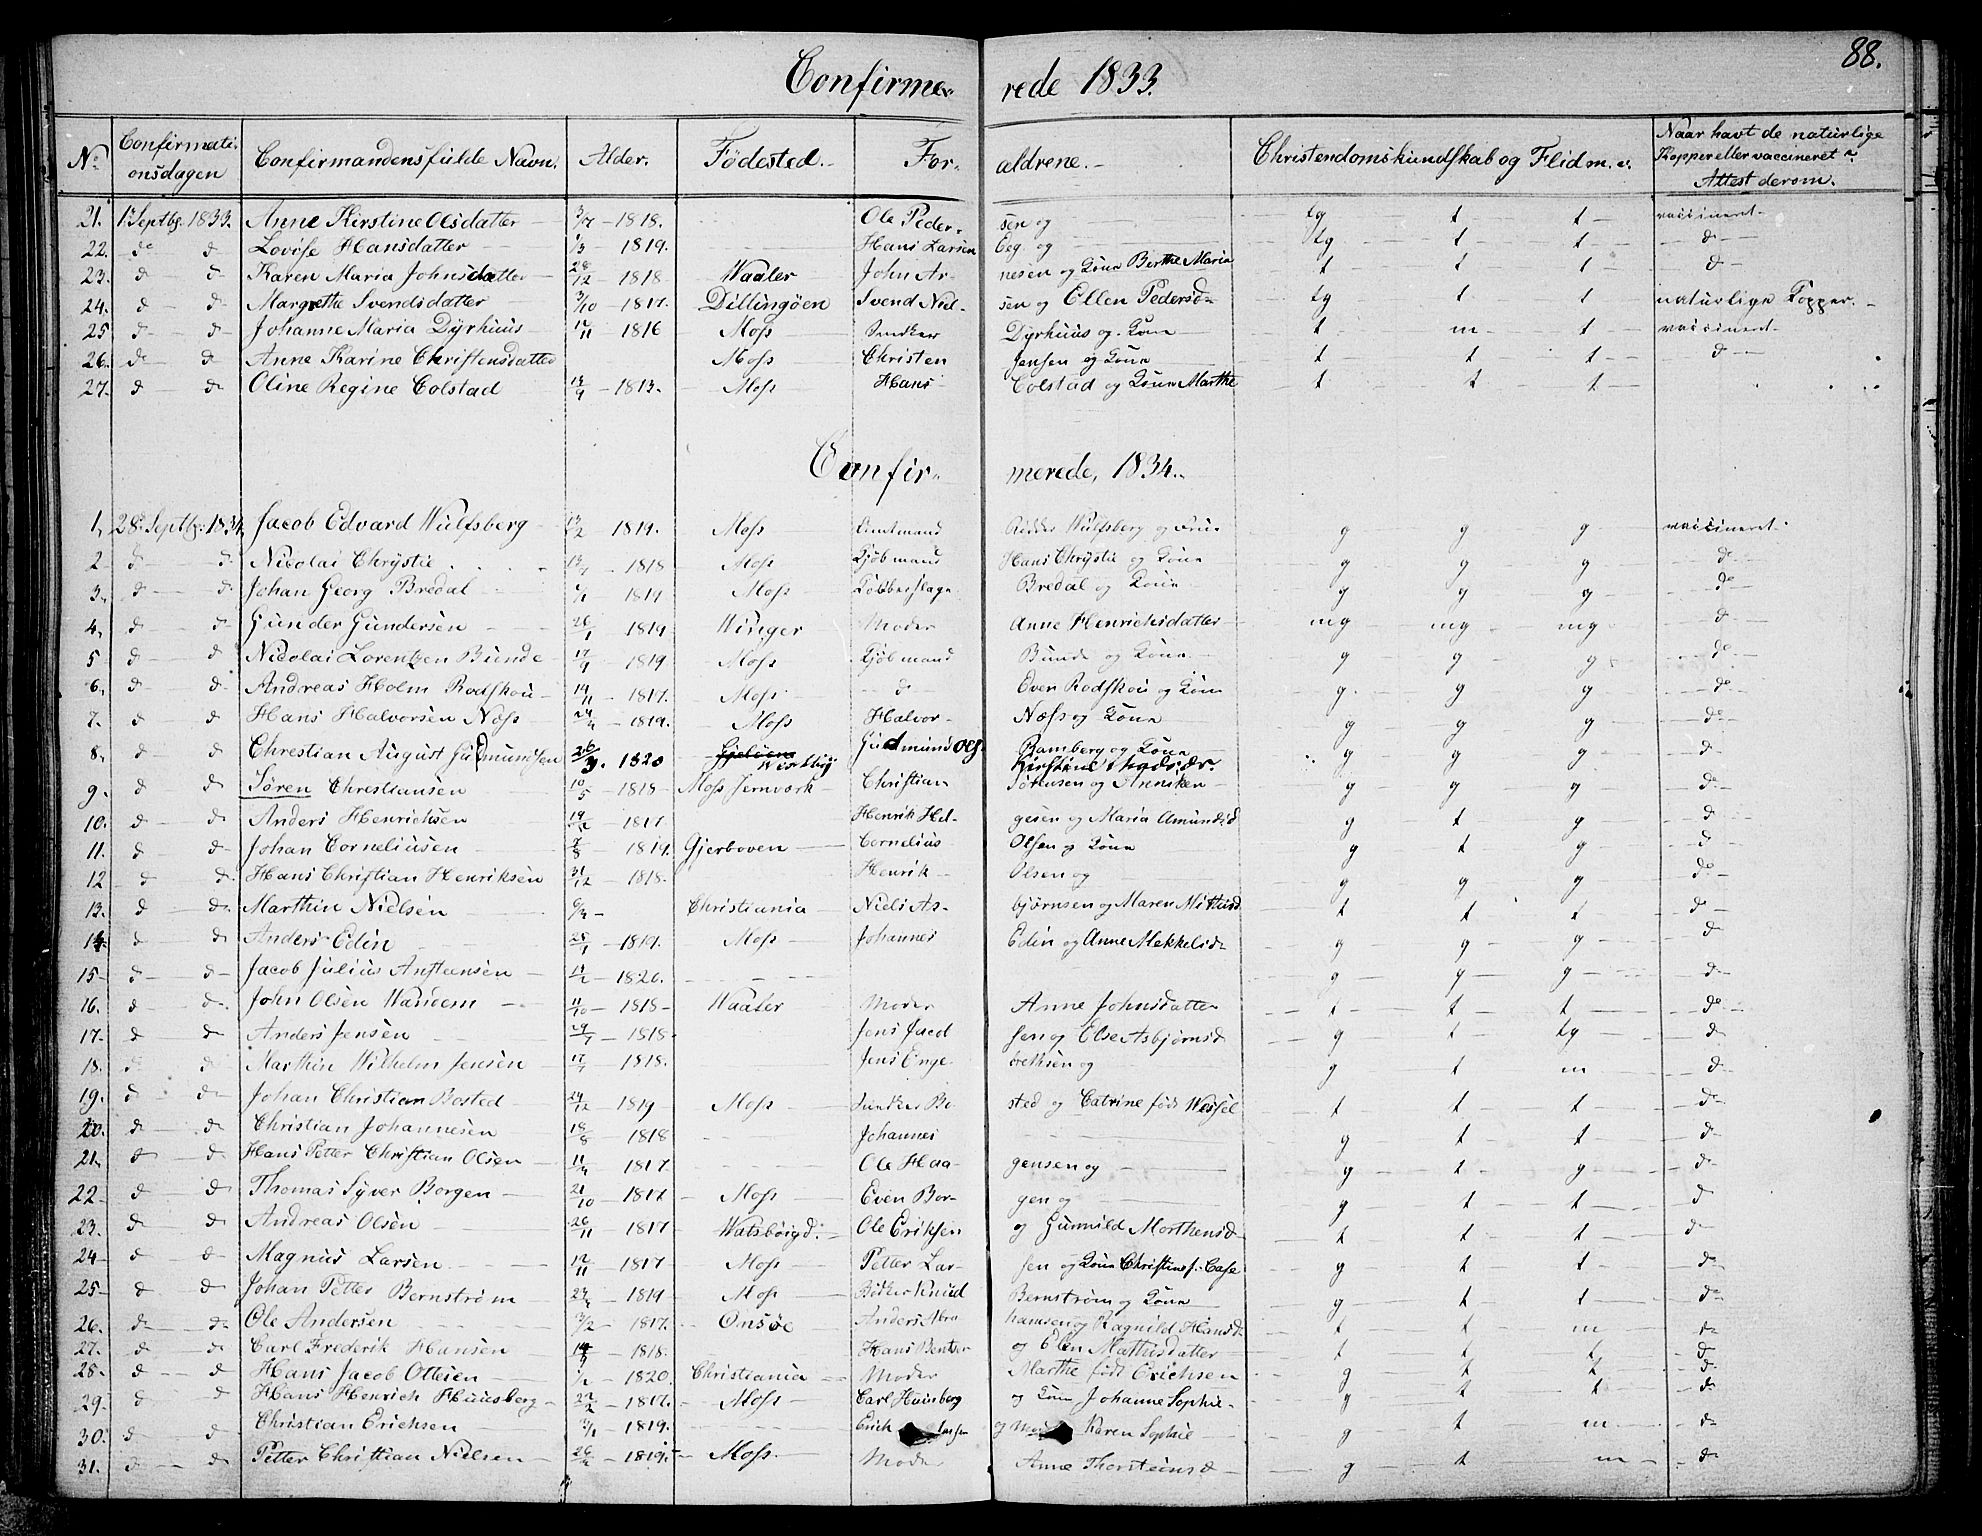 88.
Confirme- rede 1833.
No Confirmati- onsdagen Confirmandens fulde Navn. Alder. Fødested. For- aldrene. Christendomskundskab og Flid m. v. Naar havt de naturlige Kopper eller vaccineret Attest derom.
21. 1 Septbr. 1833. Anne Kirstine Olsdatter 3/7 - 1818. Ole Peder- sen og tg t t vaccineret
22. do d Lovise Hansdatter 1/3 1819. Hans Larsen og tg t t d
23. d d Karen Maria Johnsdatter 28/12 - 1818 Waaler John Ar- nesen og Kone Berthe Maria t t t d
24. d d Margrethe Svendsdatter 3/10 - 1817. Dillingøen Svend Niel- sen og Ellen Pedersd tg t t naturlige Kopper.
25 d d Johanne Maria Dyrhuus 1816 Moss Snedker Dyrhuus og Kone t m t vaccineret
26. d d Anne Karine Christensdatter Moss Christen Jensen og Kone t t t d
27. d d Oline Regine Colstad 13/9 - 1813. Moss Hans Colstad og Kone Marthe t t t
Confir- merede, 1834.
1, 28 Septbr. 1834 Jacob Edvard Wulfsberg 13/2 1819. Moss Amtmand Ridder Wulfsberg og Frue g g g vaccineret
2 d d Nicolai Chrystie 1818 Moss Kjøbmand Hans Chrystie og Kone g g g do
3, d d Johan Georg Bredal 1819 Moss Kobberslager Bredal og Kone g g g do
4, d d Gunder Gundersen 26/1 1819 Winger Moder Anne Henrichsdatter mg mg mg d
5 d d Nicolai Lorentzen Bunde 17/9 1819 Moss Kjøbmand Bunde og Kone g g g do
6, d d Andreas Holm Rodskou 14/11 - 1817. Moss d Even Rodskou og Kone g g g do
7. d d Hans Halvorsen Næss 1819. Moss Halvor Næss og Kone g g g do
8, d d Chrestian August Gudmundsen 26/3. 1820 Gudmund Ols. Ramberg og Kone g g g d
9. d d Søren Chrestiansen 10/5 - 1818 Moss Jernværk Christian Sørensen og Anniken g g g d
10. d d Anders Henrichsen 19/12 - 1817. Henrik Hel- gesen og Maria Amundsd g t g d
11. d d Johan Corneliusen 1819. Gjerboven Cornelius Olsen og Kone g t g d
12 d d Hans Christian Henriksen 31/12 - 1818. Henrik Olsen og g g g do
13. d d Marthin Nielsen Christiania Niels As- bjørnsen og Maren t t t d
14. d d Anders Edin 1819. Moss Johannes Edin og Anne Mekkelsd g g g d
15 d d Jacob Julius Anstensen 1820. g g g d
16. d d John Olsen Wandem 11/10 - 1818 Waaler Moder Anne Johnsdatter t t t do
17. d d Anders Jensen 1818. Jens Jacob sen og Else Asbjørnsd g t tg d
18. d d Marthin Wilhelm Jensen 1818. Jens Enge- brethsen og g t m d
19. d d Johan Christian Bosted 29/12 1819 Moss Snedker Bo- sted og Catrine født Wessel t t t d
20. d d Christian Johannesen 18/8 1818 Johannes g t t d
21. d d Hans Petter Christian Olsen 1817. Ole Haa- gensen og g t g d
22 d d Thomas Syver Borgen 21/10 - 1817 Moss Even Bor- gen og g t t d
23. d d Andreas Olsen 26/11 - 1817 Watsbøigd. Ole Eriksen og Gunnild Morthensd t t t d
24 d d Magnus Larsen 12/11 - 1817 Moss Petter Lar- sen og Kone Christine f. Case g t t d
25 d d Johan Petter Bernstrøm 1819 Moss Bødker Knud Bernstrøm og Kone g t t d
26. d d Ole Andersen 3/2 - 1817. Onsøe Anders Abra hamsen og Ragnild Hansd t t m d
27. d d Carl Frederik Hansen 1818. Hans Bentser og Elen Mathisdatter t t t d
28. d d Hans Jacob Ottesen 1820. Christiania Moder Marthe født Erichsen g t t d
29. d d Hans Henrich Huusberg 1817. Moss Carl Huusberg og Kone Johanne Sophie g t t d
30. d d Christian Erichsen 1819. Erich og Karen Sophie g t m d
31. d d Petter Christian Nielsen 1819. Moss. Moder Anne Thorsteinsd g t m d